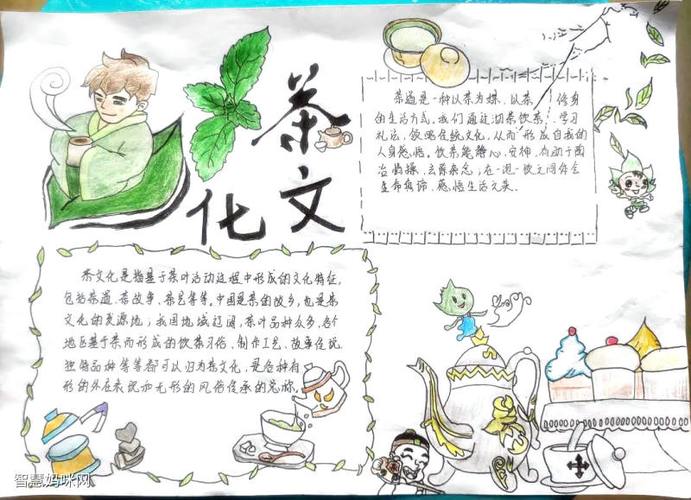 茶文化
茶道是一种以茶为媒,以茶修身
的生活方式。我们通过沏茶饮茶,学习
礼法,领略传统文化,从而形成自我的
人身感悟。饮茶能静心、安神,有助于陶
冶情操、去除杂念;在一泡一饮之间体会
生命真谛,感悟生活之美。
茶文化是指基于茶叶活动过程中形成的文化特征,
包括茶道、茶故事、茶艺等等。中国是茶的故乡,也是茶
文化的发源地;我国地域辽阔,茶叶品种众多,各个
地区基于茶而形成的饮茶习俗、制作工艺、故事传说
独特品种等等都可以归为茶文化,是各种有
形的外在表现和无形的风俗传承的总称。
智慧妈咪网